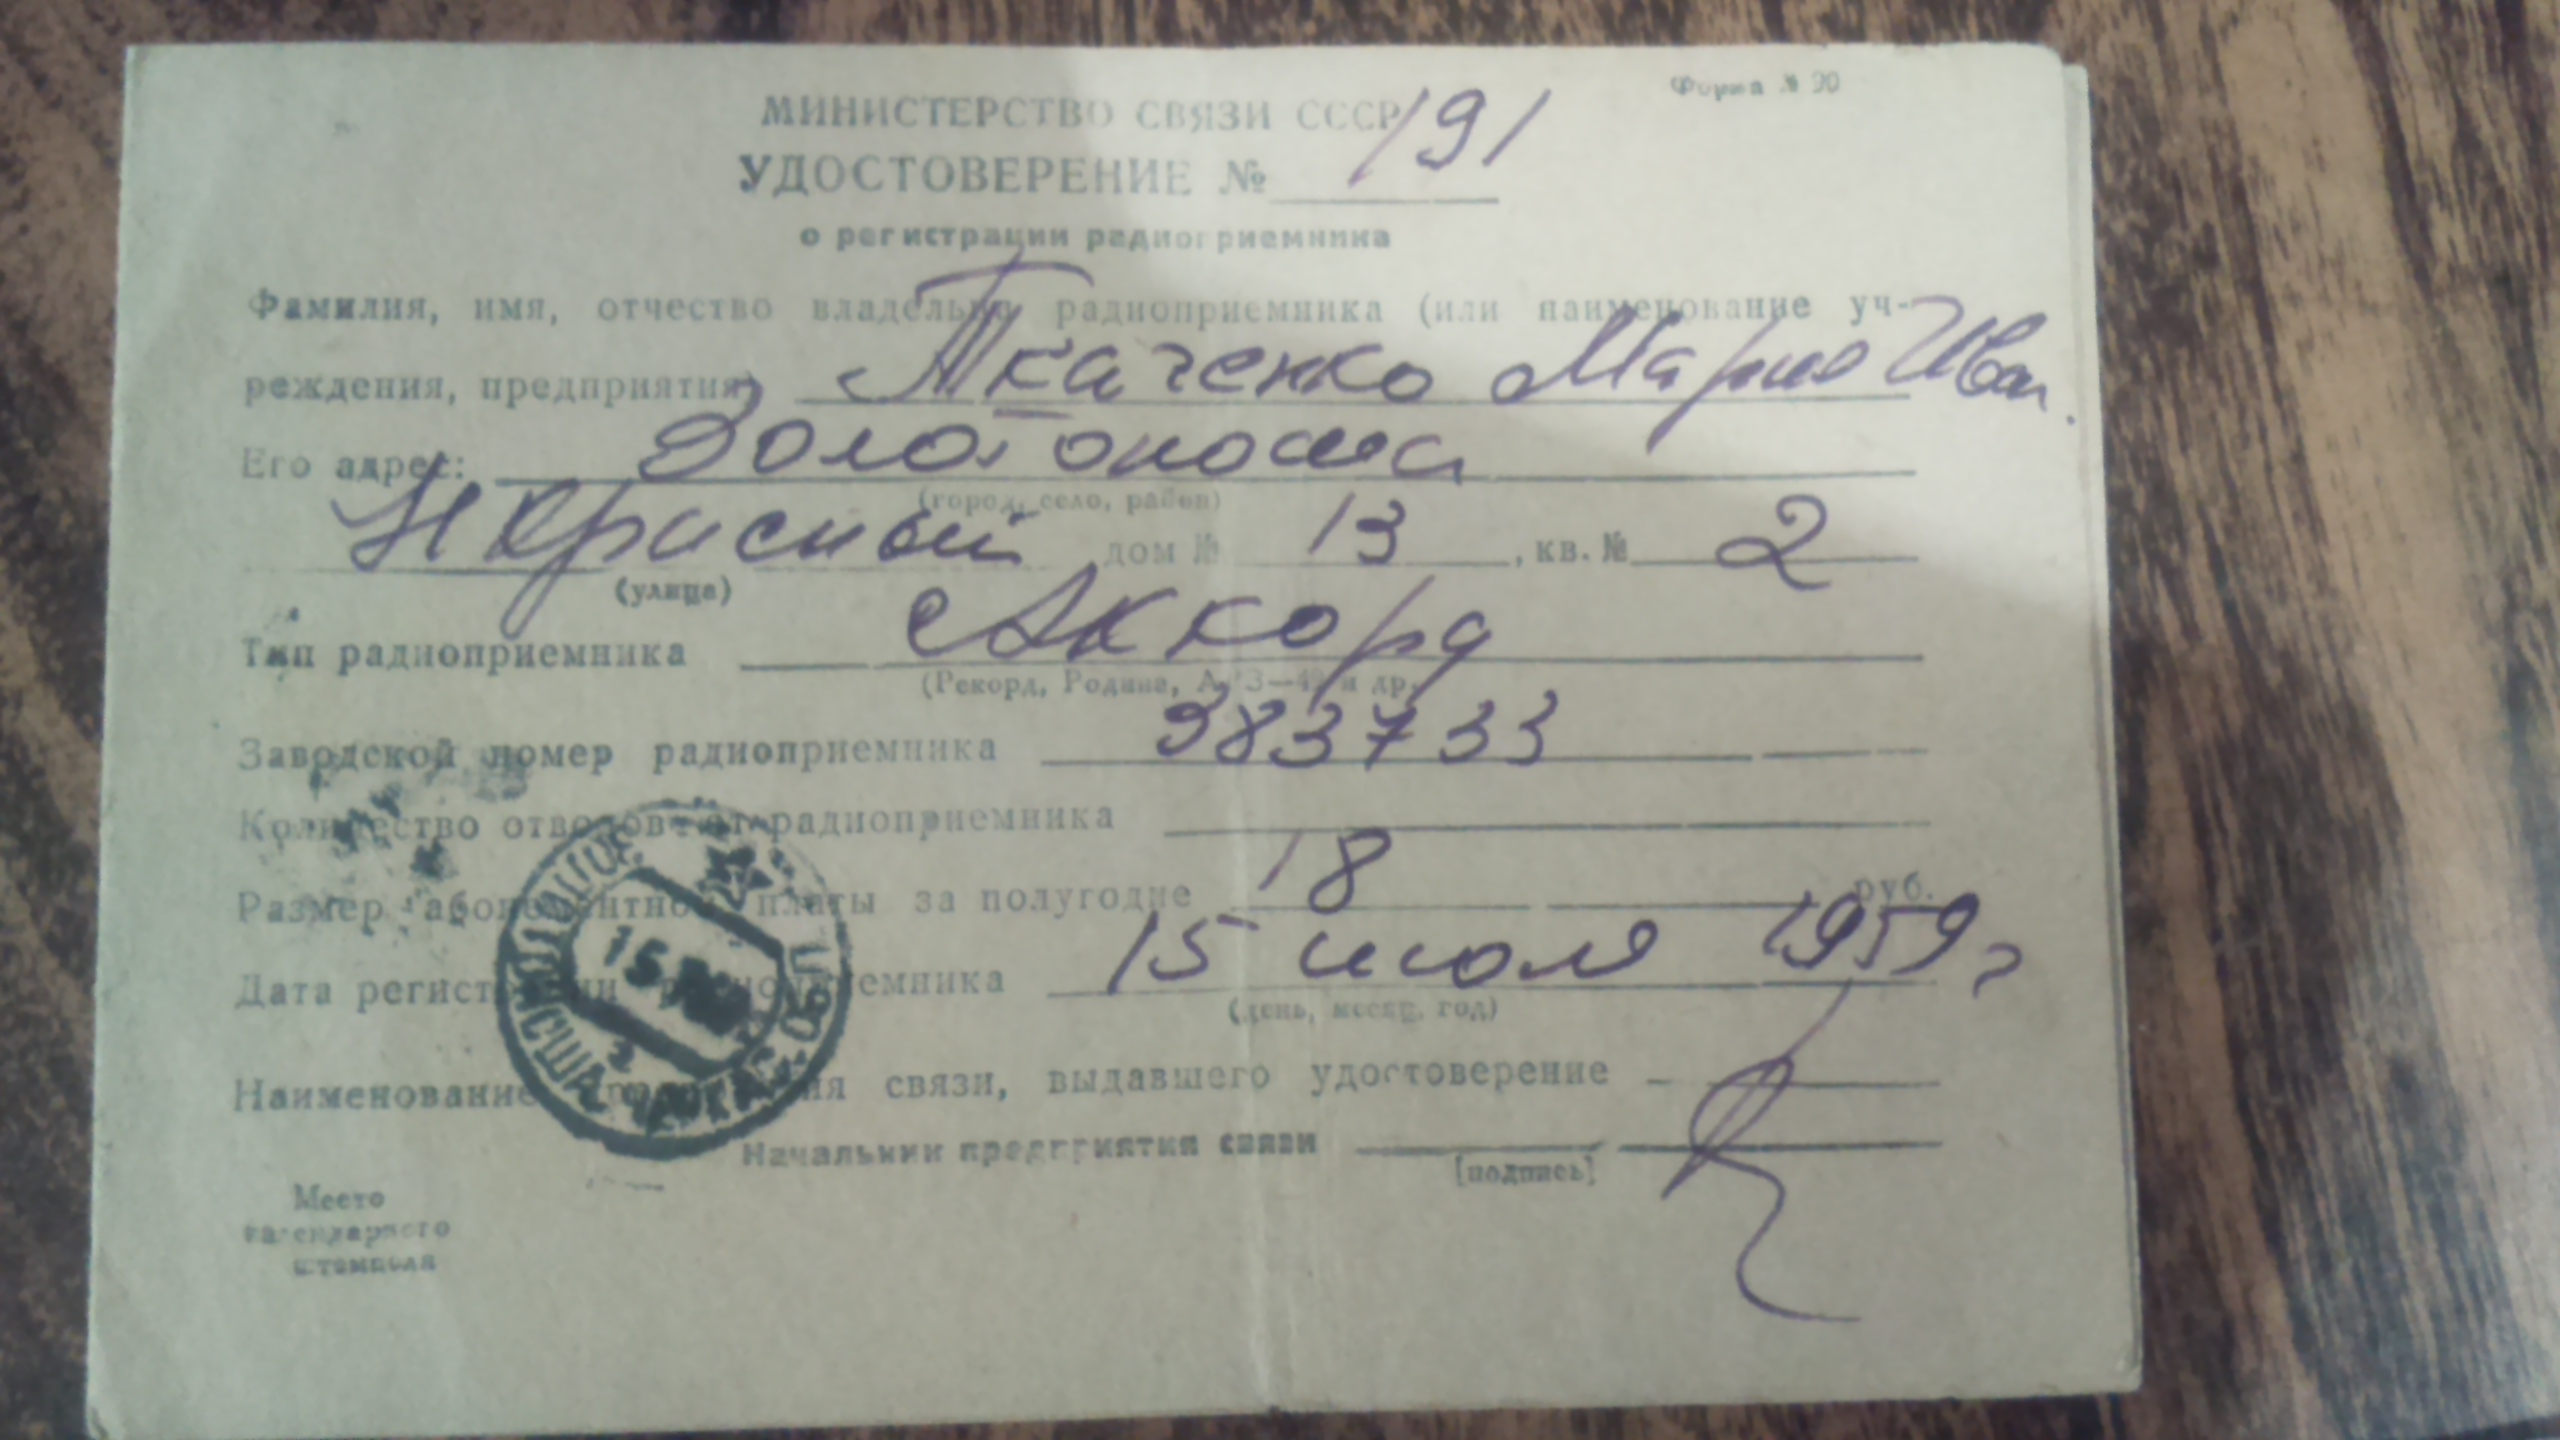 Форма № 90
МИНИСТЕРСТВО СВЯЗИ СССР
УДОСТОВЕРЕНИЕ № 191
о регистрации радиоприемника
Фамилия, имя, отчество владельца радиоприемника (или наименование уч-
реждения, предприятия) Ткаченко Мария Иван.
Его адрес: Золотоноша
(город, село, район)
Красный дом № 13, кв. № 2
(улица)
Тип радиоприемника Аккорд
(Рекорд, Родина, АРЗ—49 и др.
Заводской номер радиоприемника 383733
Количество отводов от радиоприемника
Размер абонементной платы за полугодие 18 руб.
Дата регистрации радиоприемника 15 июля 1959 г
(день, месяц, год)
Наименование предприятия связи, выдавшего удостоверение
Начальник предприятия связи
[подпись]
Место
календарного
штемпеля